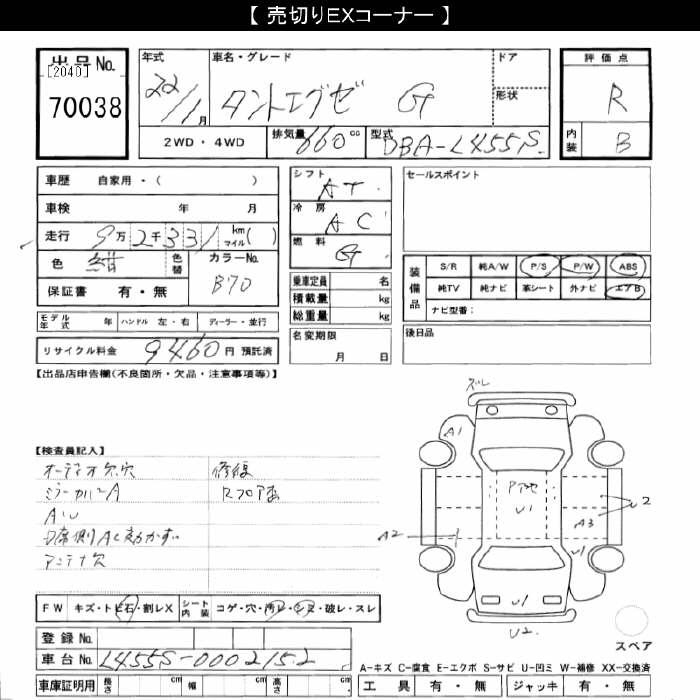 【 売切りEXコーナー 】
出品No. 年式 車名・グレード ドア 評価点
[2040]
70038 22/1月 タントエグゼ G 形状 R
2WD・4WD 排気量 660cc 型式 DBA-L455S 内装 B
車歴 自家用・( ) シフト AT セールスポイント
車検 年 月 冷房 AC
走行 9万2千331 km マイル( ) 燃料 G
色 紺 色替 カラーNo. B70
装備品 S/R 純A/W P/S P/W ABS
保証書 有・無 乗車定員 名 純TV 純ナビ 革シート 外ナビ エアB
積載量 kg ナビ型番:
モデル年式 年 ハンドル 左・右 ディーラー・並行 総重量 kg
リサイクル料金 9460円 預託済 名変期限 月 日 後日品
【出品店申告欄(不良箇所・欠品・注意事項等)】
ズレ
A1
【検査員記入】
オーディオ欠穴 修復
ミラーカバーA
AU
D席側AC効かず
アンテナ欠
U1
U2
A3
A2
U1
U1
U2
FW キズ・トビ石・割レX シート内装 コゲ・穴・汚レ・シミ・破レ・スレ
登録No.
車台No. L455S-0002152 スペア
A-キズ C-腐食 E-エクボ S-サビ U-凹ミ W-補修 XX-交換済
車庫証明用 長さ cm 幅 cm 高さ cm 工具 有・無 ジャッキ 有・無